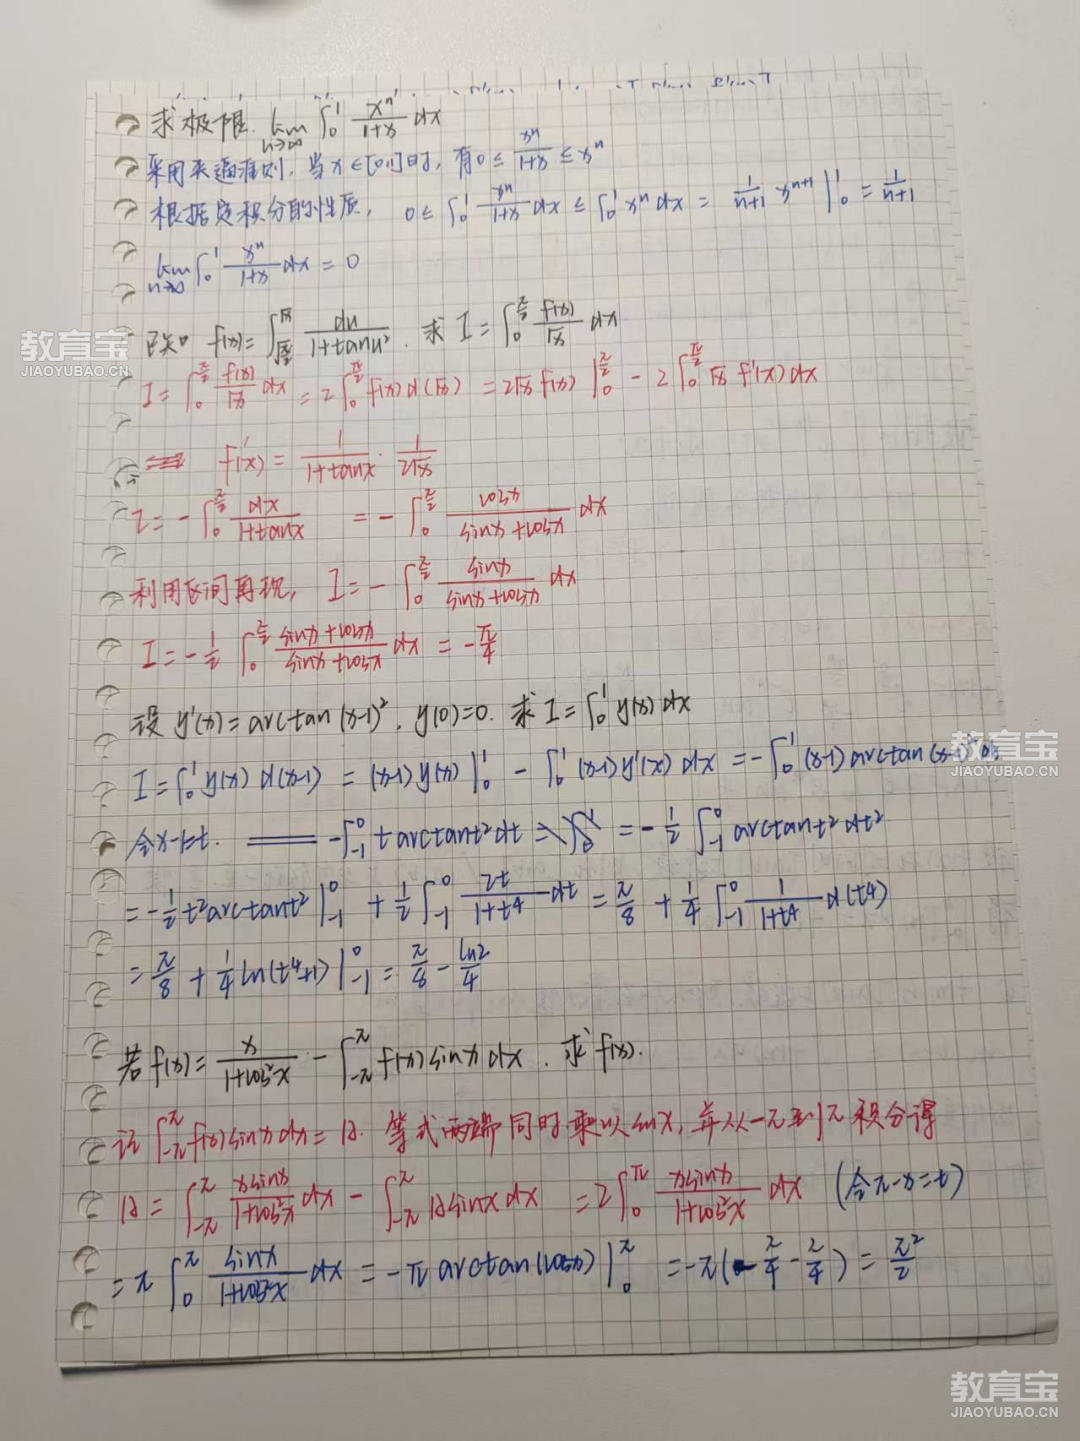 求极限 lim n→∞ ∫₀¹ xⁿ/(1+x) dx
采用夹逼准则, 当x∈[0,1]时, 有 0 ≤ xⁿ/(1+x) ≤ xⁿ
根据定积分的性质, 0 ≤ ∫₀¹ xⁿ/(1+x) dx ≤ ∫₀¹ xⁿ dx = 1/(n+1) xⁿ⁺¹ |₀¹ = 1/(n+1)
lim n→∞ ∫₀¹ xⁿ/(1+x) dx = 0
已知 f(x) = ∫_{√(π/2)}^{√x} du/(1+tanu²). 求 I = ∫₀^{π/2} f(x)/√x dx
I = ∫₀^{π/2} f(x)/√x dx = 2∫₀^{π/2} f(x)d(√x) = 2√x f(x) |₀^{π/2} - 2∫₀^{π/2} √x f'(x)dx
f'(x) = 1/(1+tanx) · 1/(2√x)
I = -∫₀^{π/2} dx/(1+tanx) = -∫₀^{π/2} cosx/(sinx+cosx) dx
利用区间再现, I = -∫₀^{π/2} sinx/(sinx+cosx) dx
I = -1/2 ∫₀^{π/2} (sinx+cosx)/(sinx+cosx) dx = -π/4
设 y'(x) = arctan(x-1)², y(0)=0. 求 I = ∫₀¹ y(x)dx
I = ∫₀¹ y(x)d(x-1) = (x-1)y(x) |₀¹ - ∫₀¹ (x-1)y'(x)dx = -∫₀¹ (x-1)arctan(x-1)²dx
令x-1=t. ═══ -∫₋₁⁰ t arctant²dt = -1/2 ∫₋₁⁰ arctant²dt²
= -1/2 t²arctant² |₋₁⁰ + 1/2 ∫₋₁⁰ 2t/(1+t⁴) dt = π/8 + 1/4 ∫₋₁⁰ 1/(1+t⁴) d(t⁴)
= π/8 + 1/4 ln(t⁴+1) |₋₁⁰ = π/8 - ln2/4
若 f(x) = x/(1+cos²x) - ∫_{-π}^{π} f(x)sinx dx. 求 f(x).
记 ∫_{-π}^{π} f(x)sinxdx = A. 等式两端同时乘以sinx, 并从-π到π积分得
A = ∫_{-π}^{π} xsinx/(1+cos²x) dx - ∫_{-π}^{π} Asinxdx = 2∫₀^{π} xsinx/(1+cos²x) dx (令π-x=t)
= π∫₀^{π} sinx/(1+cos²x) dx = -π arctan(cosx) |₀^{π} = -π(-π/4 - π/4) = π²/2
教育宝
JIAOYUBAO.CN
教育宝
JIAOYUBAO.CN
教育宝
JIAOYUBAO.CN